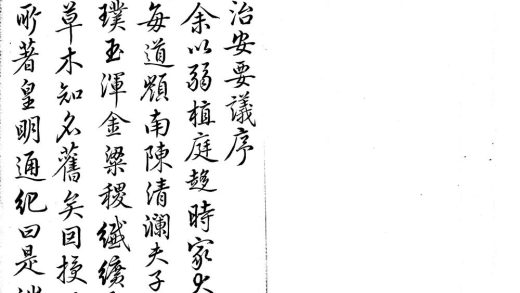 治安要議序
余以弱植庭趍時家大
每道嶺南陳清瀾夫子
璞玉渾金粱稷纎纊
草木知名舊矣因授
所著皇明通紀曰是